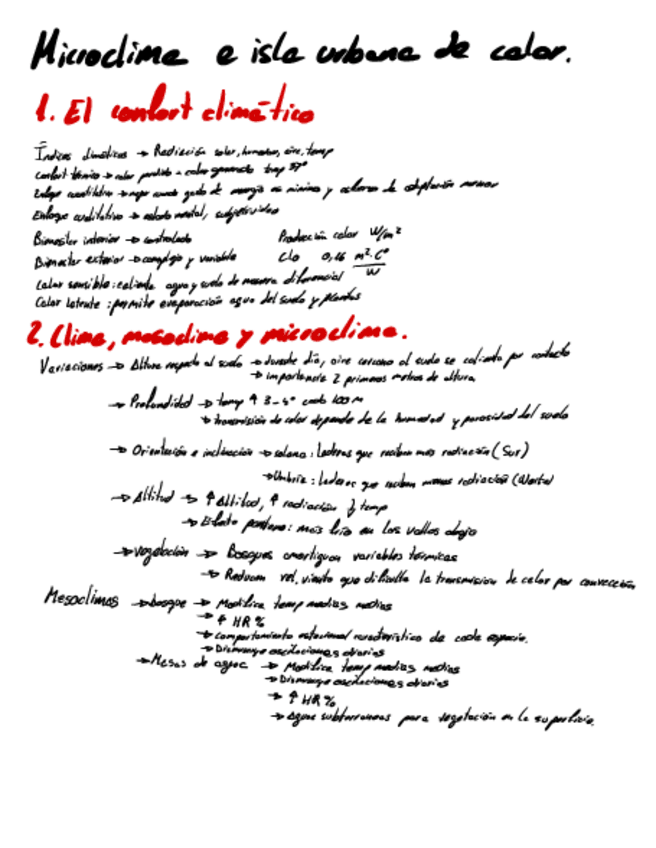 Microclima e isla urbana de calor.
1. El confort climático
Índices climáticos → Radiación solar, humedad, aire, temp
Confort térmico → calor perdido = calor generado temp 37º
Enfoque cuantitativo → mejor cuando gasto de energía es mínimo y esfuerzo de adaptación menor
Enfoque cualitativo → estado mental, subjetividad
Bienestar interior → controlado Producción calor W/m²
Bienestar exterior → complejo y variable Clo 0,16 m²·Cº / W
Calor sensible: calienta agua y suelo de manera diferencial
Calor latente: permite evaporación agua del suelo y plantas
2. Clima, mesoclima y microclima.
Variaciones → Altura respecto al suelo → durante día, aire cercano al suelo se calienta por contacto
→ importancia 2 primeros metros de altura
→ Profundidad → temp ↑ 3-4º cada 100 m
↳ transmisión de calor depende de la humedad y porosidad del suelo
→ Orientación e inclinación → solana: laderas que reciben más radiación (Sur)
→ Umbría: laderas que reciben menos radiación (Norte)
→ Altitud → ↑ Altitud, ↑ radiación ↓ temp
→ Efecto pantano: más frío en los valles abajo
→ vegetación → Bosques amortiguan variables térmicas
→ Reducen vel. viento que dificulta la transmisión de calor por convección
Mesoclimas → bosque → Modifica temp medias medias
→ ↑ HR %
→ comportamiento estacional característico de cada especie.
→ Disminuye oscilaciones diarias
→ Masas de agua → Modifica temp medias medias
→ Disminuye oscilaciones diarias
→ ↑ HR %
→ Aguas subterraneas para vegetación en la superficie.